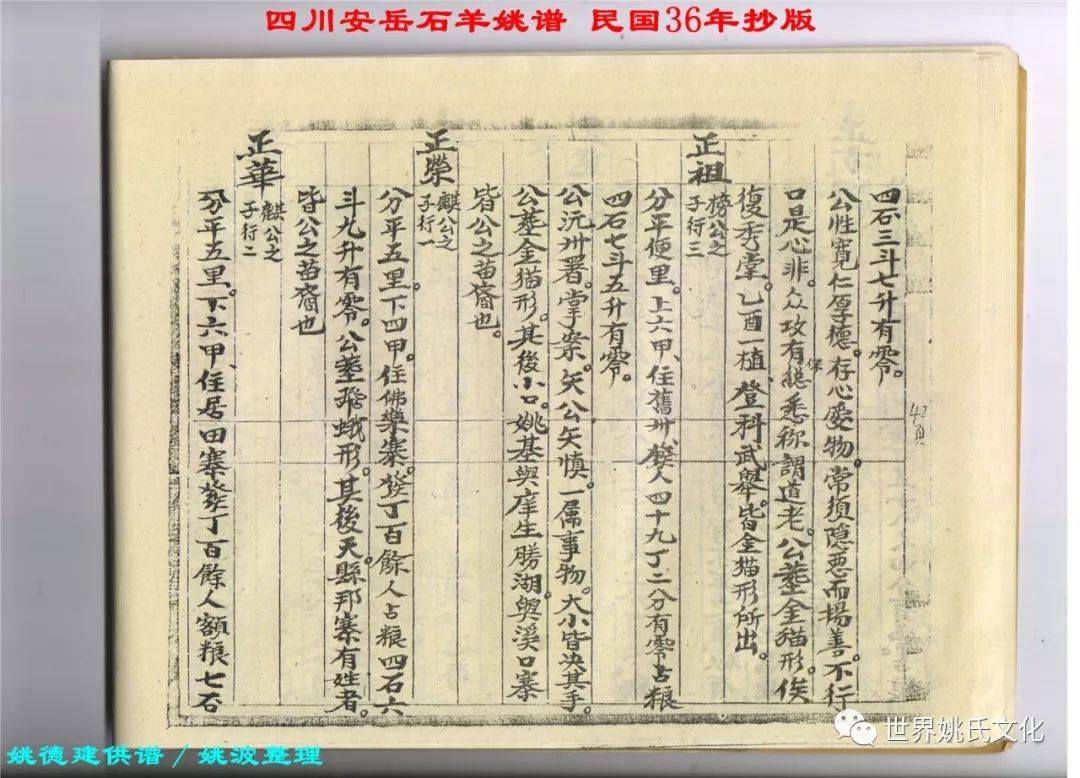 四川安岳石羊姚谱 民国36年抄版
四石三斗七升有零。
公性寬仁厚德。存心愛物。常須隱惡而揚善。不行
口是心非。众攻有 悉称謂道老。公塟金猫形。俟
保
復秀棠。乙酉一植登科武舉。皆金猫形所出。
正祖
榜公之
子行三
分平便里。上六甲、住舊州、 人四十九丁二分有零占粮
四石七斗五升有零。
公沅州署。掌案。矢公矢慎。一属事物。大小皆決其手。
公塟金猫形。其後小口。姚基與庠生勝湖。與溪口寨
皆公之苗裔也。
正榮
麒公之
子行一
分平五里。下四甲。住佛樂寨。發丁百餘人占粮四石六
斗九升有零。公塟飛蛾形。其後天縣邦寨有姓者。
皆公之苗裔也
正華
麒公之
子行二
分平五里。下六甲、住居田寨發丁百餘人額粮七石
42頁
世界姚氏文化
姚德建供谱／姚波整理